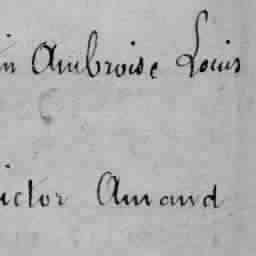 in Ambroise Louis
ictor Amand